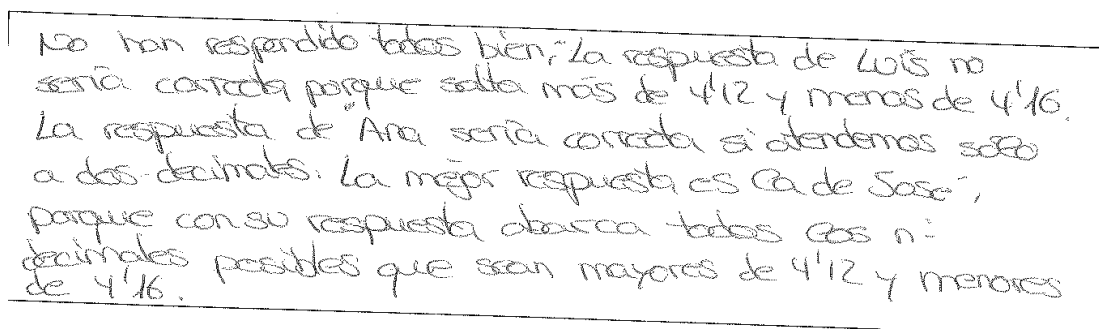 No han respondido todos bien, La respuesta de Luis no
sería correcta porque salta más de 4'12 y menos de 4'16.
La respuesta de Ana sería correcta si atendemos solo
a dos decimales. La mejor respuesta es la de Jose,
porque con su respuesta abarca todos los nº
decimales posibles que sean mayores de 4'12 y menores
de 4'16.